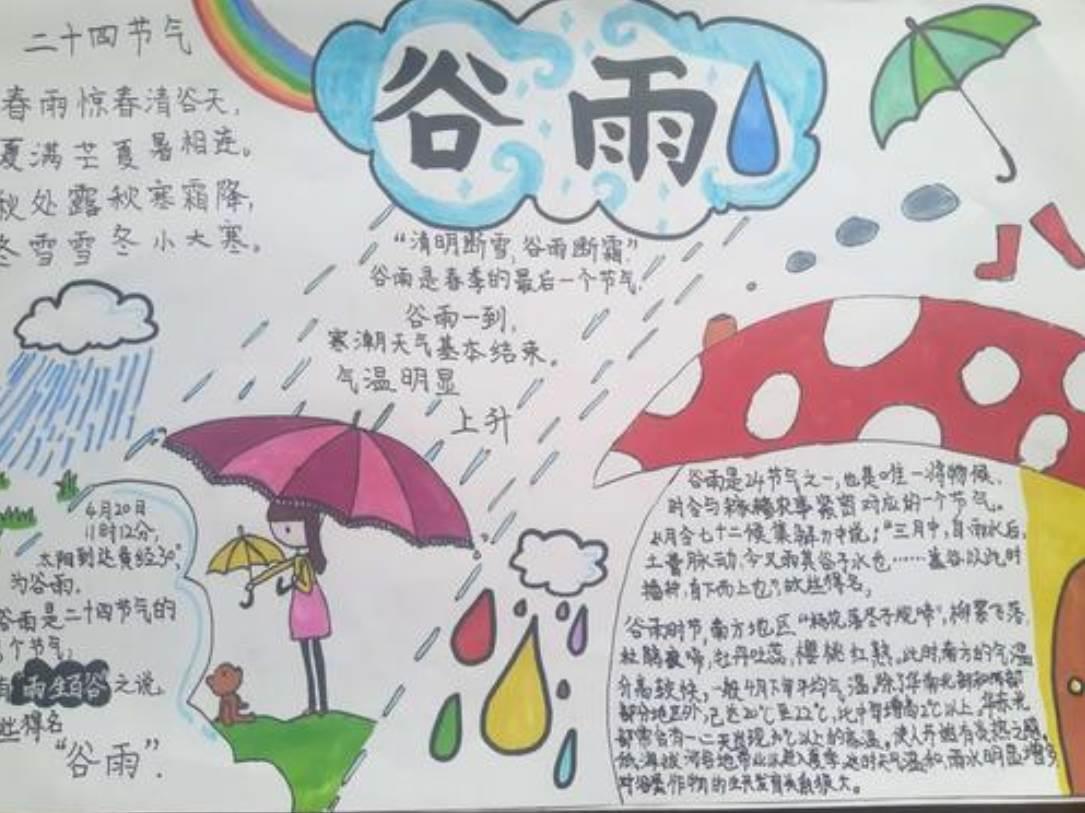 二十四节气
春雨惊春清谷天,
夏满芒夏暑相连。
秋处露秋寒霜降,
冬雪雪冬小大寒。
谷雨
“清明断雪,谷雨断霜”
谷雨是春季的最后一个节气.
谷雨一到,
寒潮天气基本结束。
气温明显
上升
4月20日
11时12分,
太阳到达黄经30°,
为谷雨.
谷雨是二十四节气的
个节气,
有“雨生百谷”之说,
此得名
“谷雨”.
谷雨是24节气之一,也是唯一将物候、
时令与稼穑农事紧密对应的一个节气。
月令七十二候集解中说:“三月中,自雨水后,
土膏脉动,今又雨其谷于水也……盖谷以此时
播种,自下而上也”,故此得名,
谷雨时节,南方地区“杨花落尽子规啼”,柳絮飞落,
杜鹃夜啼,牡丹吐蕊,樱桃红熟,此时南方的气温
升高较快,一般4月下旬平均气温,除了华南北部和西部
部分地区外,已达20℃至22℃,比中旬增高2℃以上,华东
部常会有一二天出现30℃以上的高温,使人开始有炎热之感。
低海拔河谷地带也进入夏季,这时天气温和,雨水明显增多
对谷类作物的生长发育关系很大。